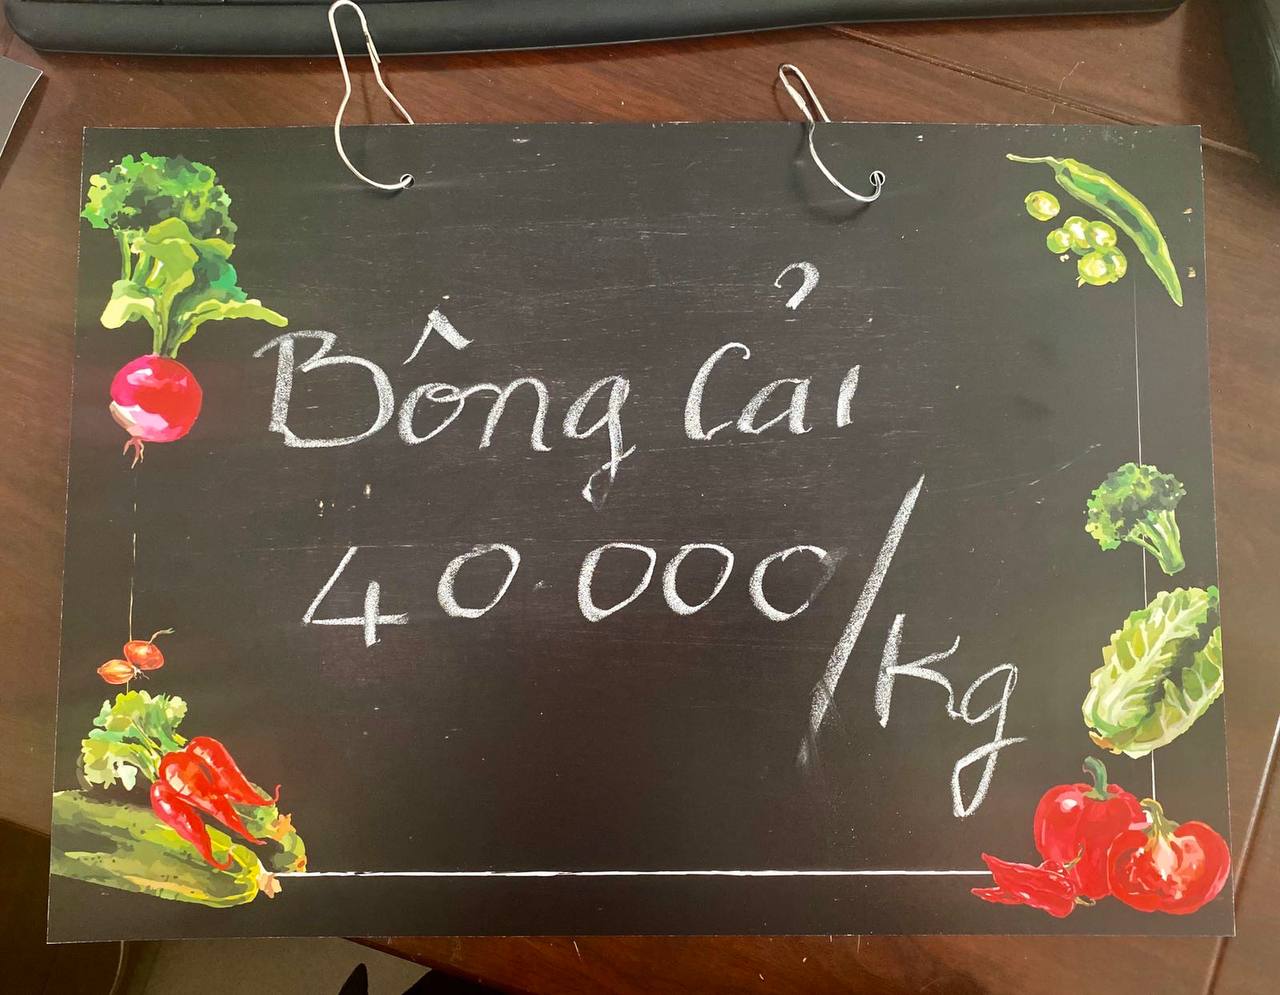 Bông Cải
40.000/kg